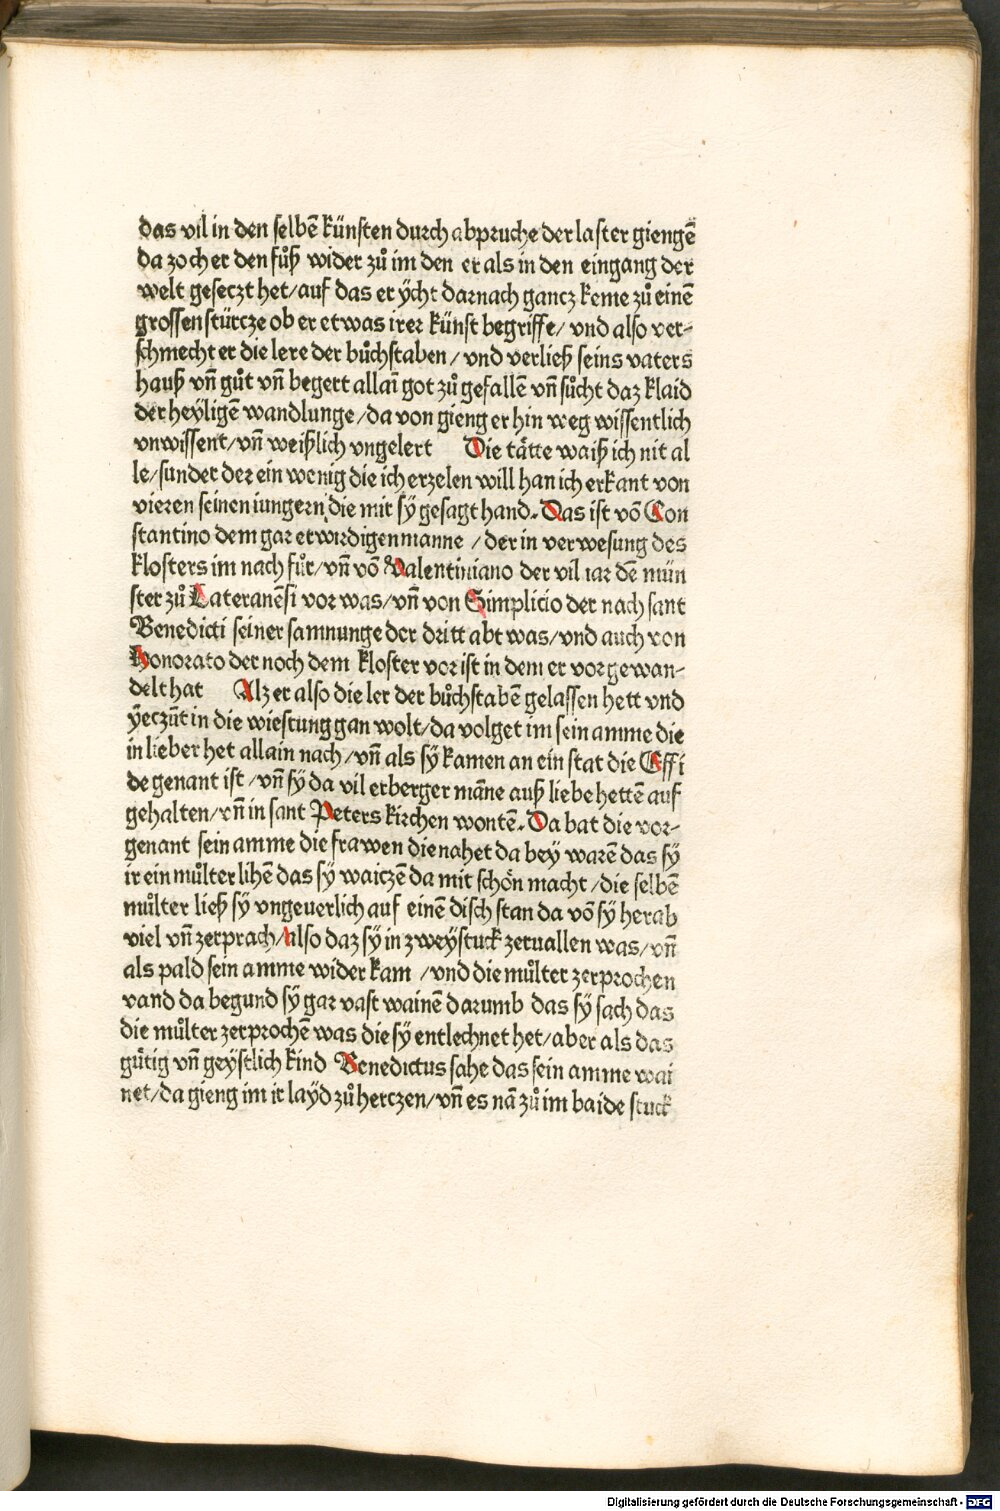 das vil in den selbē künsten durch abpruche der laster giengē
da zoch er den fůß wider zů im den er als in den eingang der
welt geseczt het/auf das er ÿcht darnach gancz keme zů einē
grossen stürcze ob er etwas irer künst begriffe/ vnd also ver-
schmecht er die lere der bůchstaben/ vnd verließ seins vaters
hauß vñ gůt vñ begert allaī got zů gefallē vñ sůcht daz klaid
der heÿligē wandlunge/da von gieng er hin weg wissentlich
vnwissent/vñ weißlich vngelert Die tätte waiß ich nit al
le/sunder der ein wenig die ich erzelen will han ich erkant von
vieren seinen iungern die mir sÿ gesagt hand. Das ist vō Con
stantino dem gar erwirdigen manne /der in verwesung des
klosters im nach fůr/vñ vō Valentiniano der vil iar dē mün
ster zů Lateranēsi vor was/vñ von Simplicio der nach sant
Benedicti seiner samnunge der dritt abt was/vnd auch von
Honorato der noch dem kloster vor ist in dem er vor gewan-
delt hat Alz er also die ler der bůchstabē gelassen hett vnd
ÿeczūt in die wiestung gan wolt/da volget im sein amme die
in lieber het allain nach/vñ als sÿ kamen an ein stat die Effi
de genant ist/vñ sÿ da vil erberger māne auß liebe hettē auf
gehalten/vñ in sant Peters kirchen wontē. Da bat die vor-
genant sein amme die frawen die nahet da bey warē das sÿ
ir ein můlter lihē das sÿ waiczē da mit schön macht/die selbē
můlter ließ sÿ vngeuerlich auf einē disch stan da vō sÿ herab
viel vñ zerprach/also daz sÿ in zweÿ stuck zeruallen was/vñ
als pald sein amme wider kam /vnd die můlter zerprochen
vand da begund sÿ gar vast wainē darumb das sÿ sach das
die můlter zerprochē was die sÿ entlechnet het/aber als das
gůtig vñ geÿstlich kind Benedictus sahe das sein amme wai
net/da gieng im ir laÿd zů herczen/vñ es nā zů im baide stuck
Digitalisierung gefördert durch die Deutsche Forschungsgemeinschaft - DFG